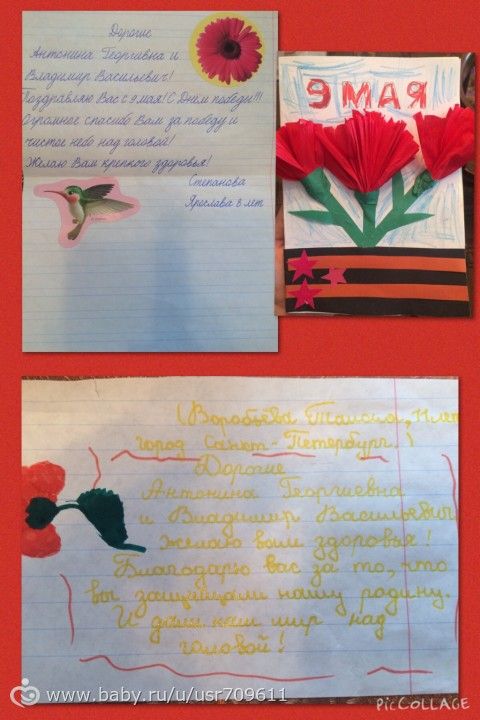 Дорогие
Антонина Георгиевна и
Владимир Васильевич!
Поздравляю Вас с 9 мая! С Днём победы!!!
Огромное спасибо Вам за победу и
чистое небо над головой!
Желаю Вам крепкого здоровья!
Степанова
Ярослава 8 лет
9 МАЯ
(Воробьёва Таисия, 11 лет
город Санкт-Петербург.)
Дорогие
Антонина Георгиевна
и Владимир Васильевич
желаю вам здоровья!
Благодарю вас за то, что
вы защищали нашу родину.
И дали нам мир над
головой!
www.baby.ru/u/usr709611
PIC COLLAGE